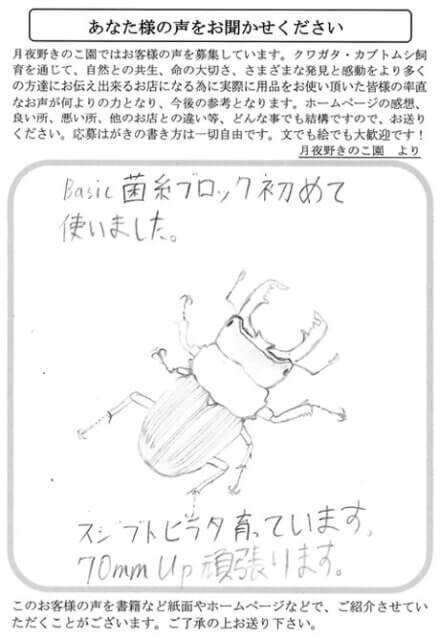 あなた様の声をお聞かせください
月夜野きのこ園ではお客様の声を募集しています。クワガタ・カブトムシ飼
育を通じて、自然との共生、命の大切さ、さまざまな発見と感動をより多く
の方達にお伝え出来るお店になる為に実際に用品をお使い頂いた皆様の率直
なお声が何よりの力となり、今後の参考となります。ホームページの感想、
良い所、悪い所、他のお店との違い等、どんな事でも結構ですので、お送り
ください。応募はがきの書き方は一切自由です。文でも絵でも大歓迎です！
月夜野きのこ園　より
Basic 菌糸ブロック初めて
使いました。
スジブトヒラタ育っています。
70mm Up 頑張ります。
このお客様の声を書籍など紙面やホームページなどで、ご紹介させてい
ただくことがございます。ご了承の上お送り下さい。